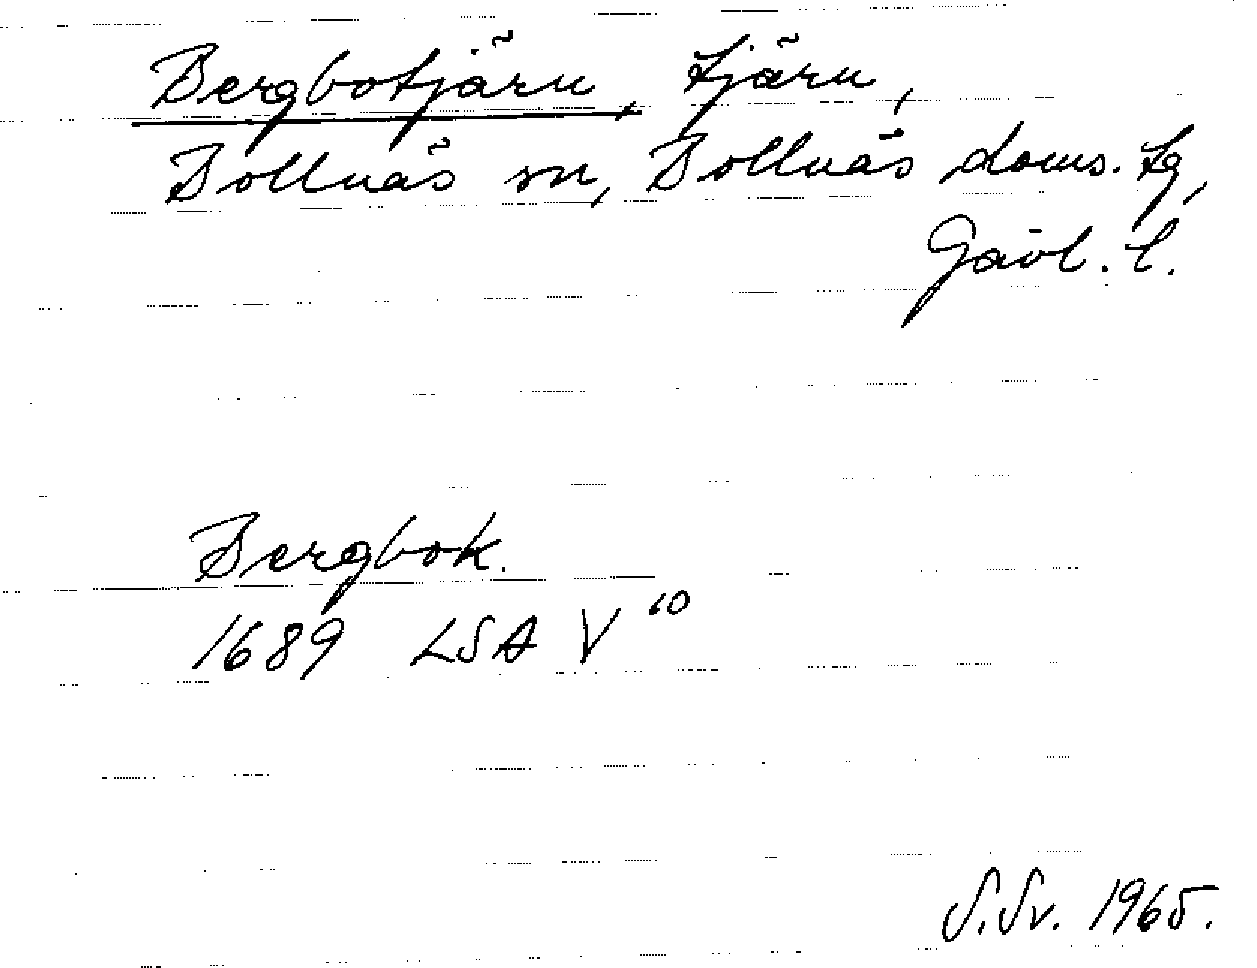 Bergbotjärn, tjärn,
Bollnäs sn, Bollnäs doms. tg,
Gävl. l.
Bergbok.
1689 LSA V 10
S.Sv. 1965.